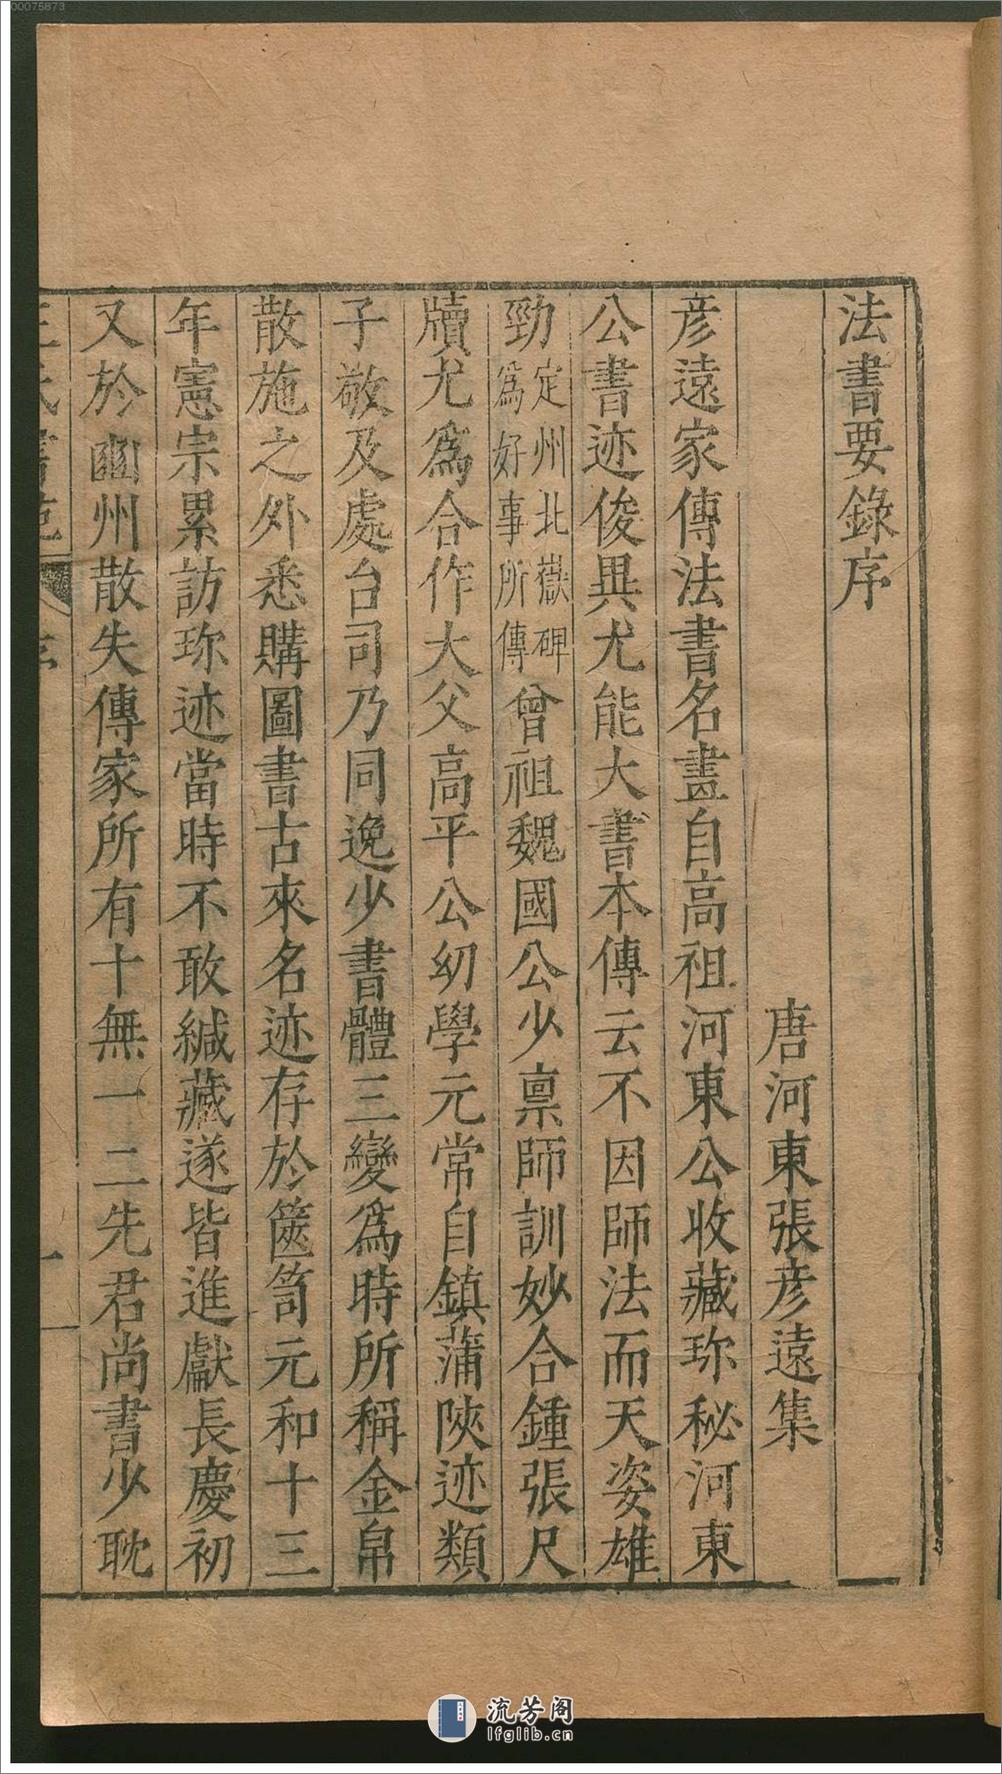 法書要錄序
唐河東張彦遠集
彦遠家傳法書名畫自高祖河東公收藏珎秘河東
公書迹俊異尤能大書本傳云不因師法而天姿雄
勁定州北嶽碑爲好事所傳曾祖魏國公少禀師訓妙合鍾張尺
牘尤爲合作大父高平公幼學元常自鎮蒲陜迹類
子敬及處台司乃同逸少書體三變爲時所稱金帛
散施之外悉購圖書古來名迹存於篋笥元和十三
年憲宗累訪珎迹當時不敢緘藏遂皆進獻長慶初
又於豳州散失傳家所有十無一二先君尚書少耽
王氏書苑
序
一
00075873
流芳阁
lfglib.cn